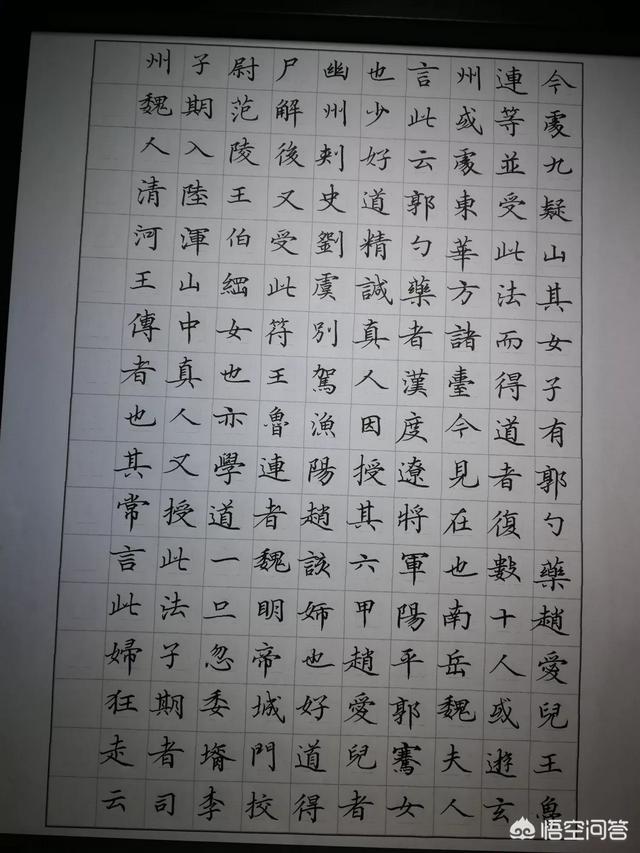 今處九疑山其女子有郭勺藥趙愛兒王魯
連等並受此法而得道者復數十人或遊玄
州或處東華方諸臺今見在也南岳魏夫人
言此云郭勺藥者漢度遼將軍陽平郭騫女
也少好道精誠真人因授其六甲趙愛兒者
幽州刺史劉虞別駕漁陽趙該姊也好道得
尸解後又受此符王魯連者魏明帝城門校
尉范陵王伯綱女也亦學道一旦忽委壻李
子期入陸渾山中真人又授此法子期者司
州魏人清河王傳者也其常言此婦狂走云
悟空问答